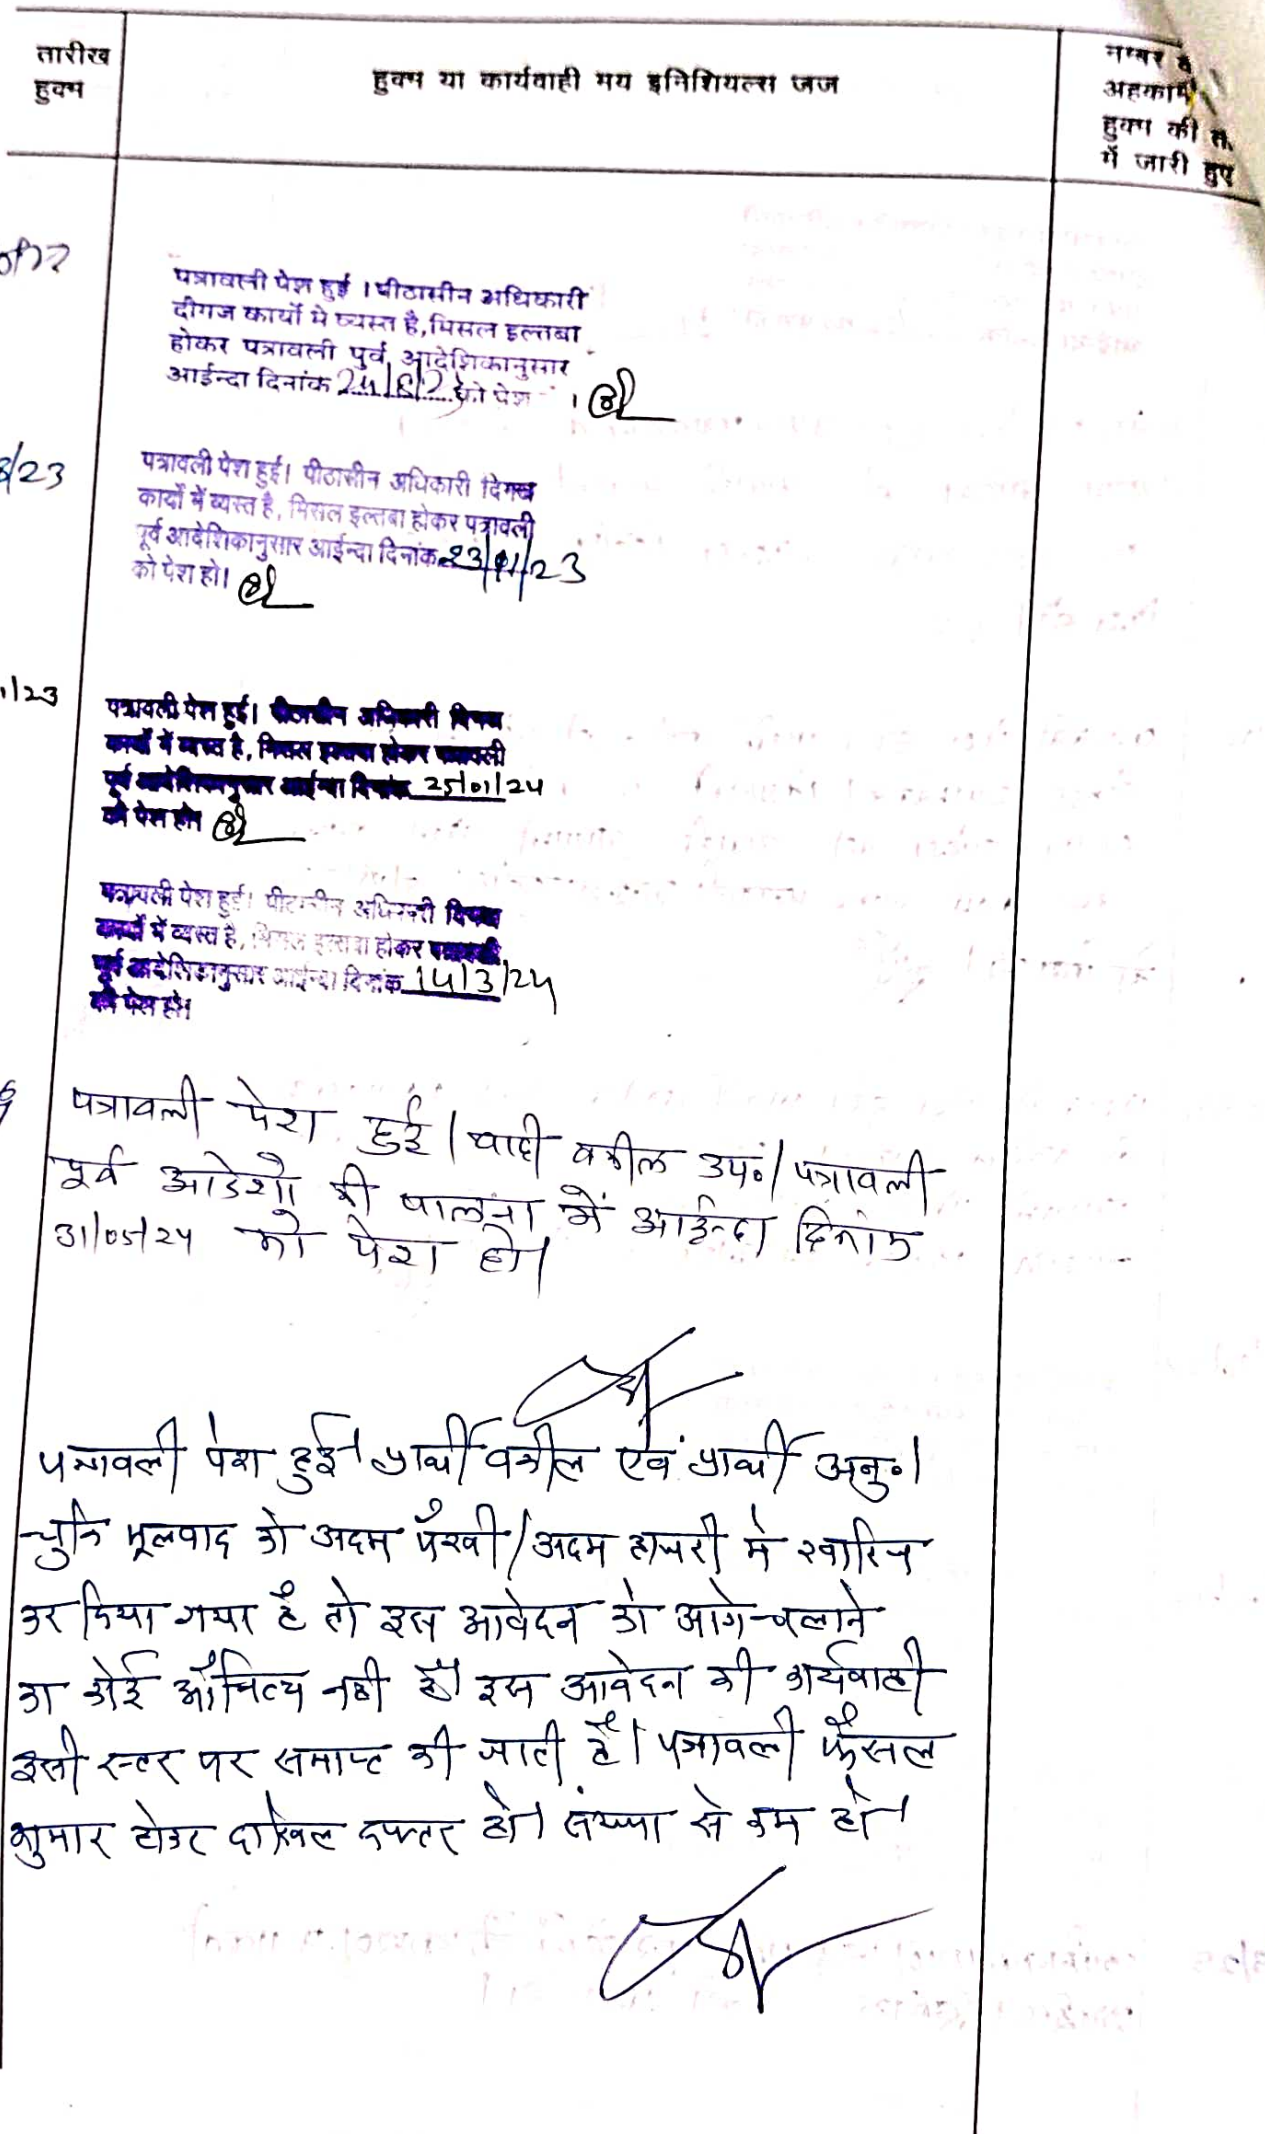 तारीख
हुक्म
हुक्म या कार्यवाही मय इनिशियल्स जज
नम्बर व
अहकाम
हुक्म की त
में जारी हुए
पत्रावली पेश हुई । पीठासीन अधिकारी
दीगज कार्यो मे व्यस्त है, मिसल इल्तबा
होकर पत्रावली पुर्व आदेशिकानुसार
आईन्दा दिनांक को पेश ।
8/23
पत्रावली पेश हुई। पीठासीन अधिकारी दिगर
कार्यों में व्यस्त है, मिसल इल्तबा होकर पत्रावली
पूर्व आदेशिकानुसार आईन्दा दिनांक 23/11/23
को पेश हो।
1/23
पत्रावली पेश हुई। पीठासीन अधिकारी दिगर
कार्यों में व्यस्त है, मिसल इल्तबा होकर पत्रावली
पूर्व आदेशिकानुसार आईन्दा दिनांक 25/01/24
को पेश हो।
पत्रावली पेश हुई। पीठासीन अधिकारी दिगर
कार्यों में व्यस्त है, मिसल इल्तबा होकर पत्रावली
पूर्व आदेशिकानुसार आईन्दा दिनांक 14/3/24
को पेश हो।
पत्रावली पेश हुई। वादी वकील उप॰। पत्रावली
पूर्व आदेशो की पालना में आईन्दा दिनांक
31/05/24 को पेश हो।
पत्रावली पेश हुई। प्रार्थी वकील एवं प्रार्थी अनु॰।
चुकि मूलवाद को अदम पैरवी/अदम हाजरी मे खारिज
कर दिया गया है तो इस आवेदन को आगे चलाने
का कोई औचित्य नही है। इस आवेदन की कार्यवाही
इसी स्तर पर समाप्त की जाती है। पत्रावली फैसल
शुमार होकर दाखिल दफ्तर हो। संख्या से कम हो।